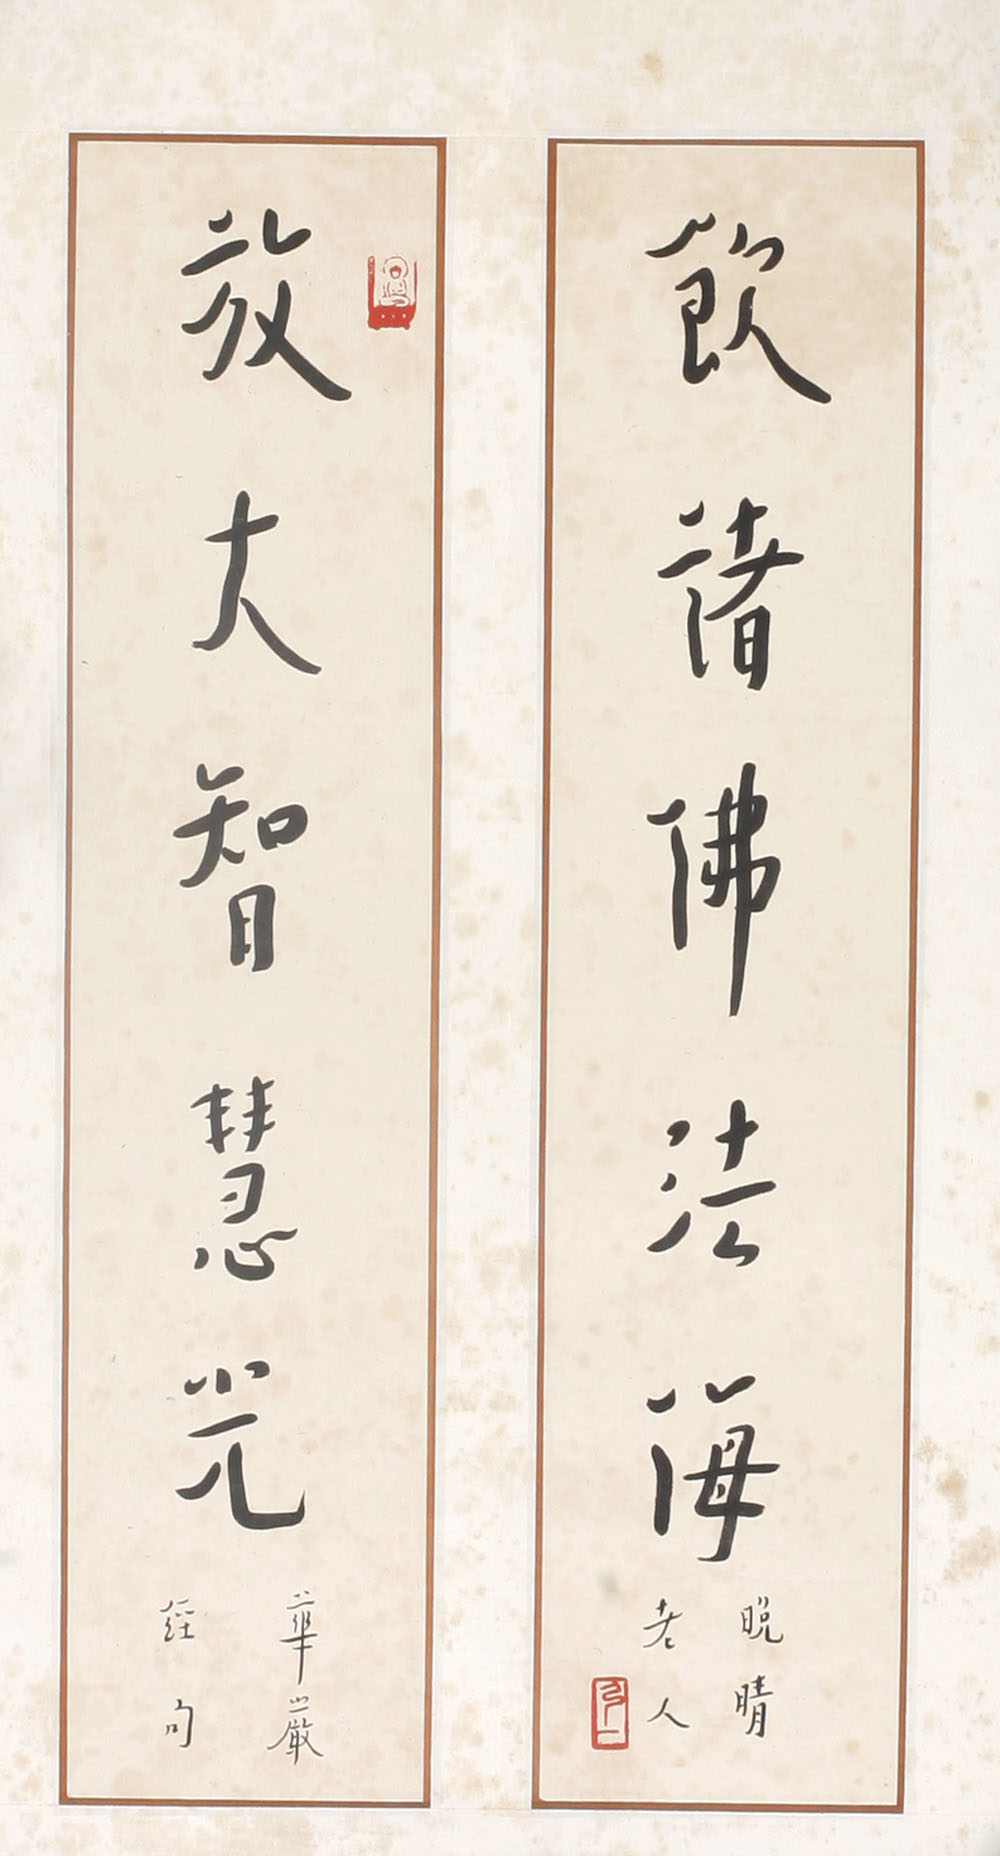 飲諸佛法海
晚晴
老人
弘一
放大智慧光
華嚴
經句